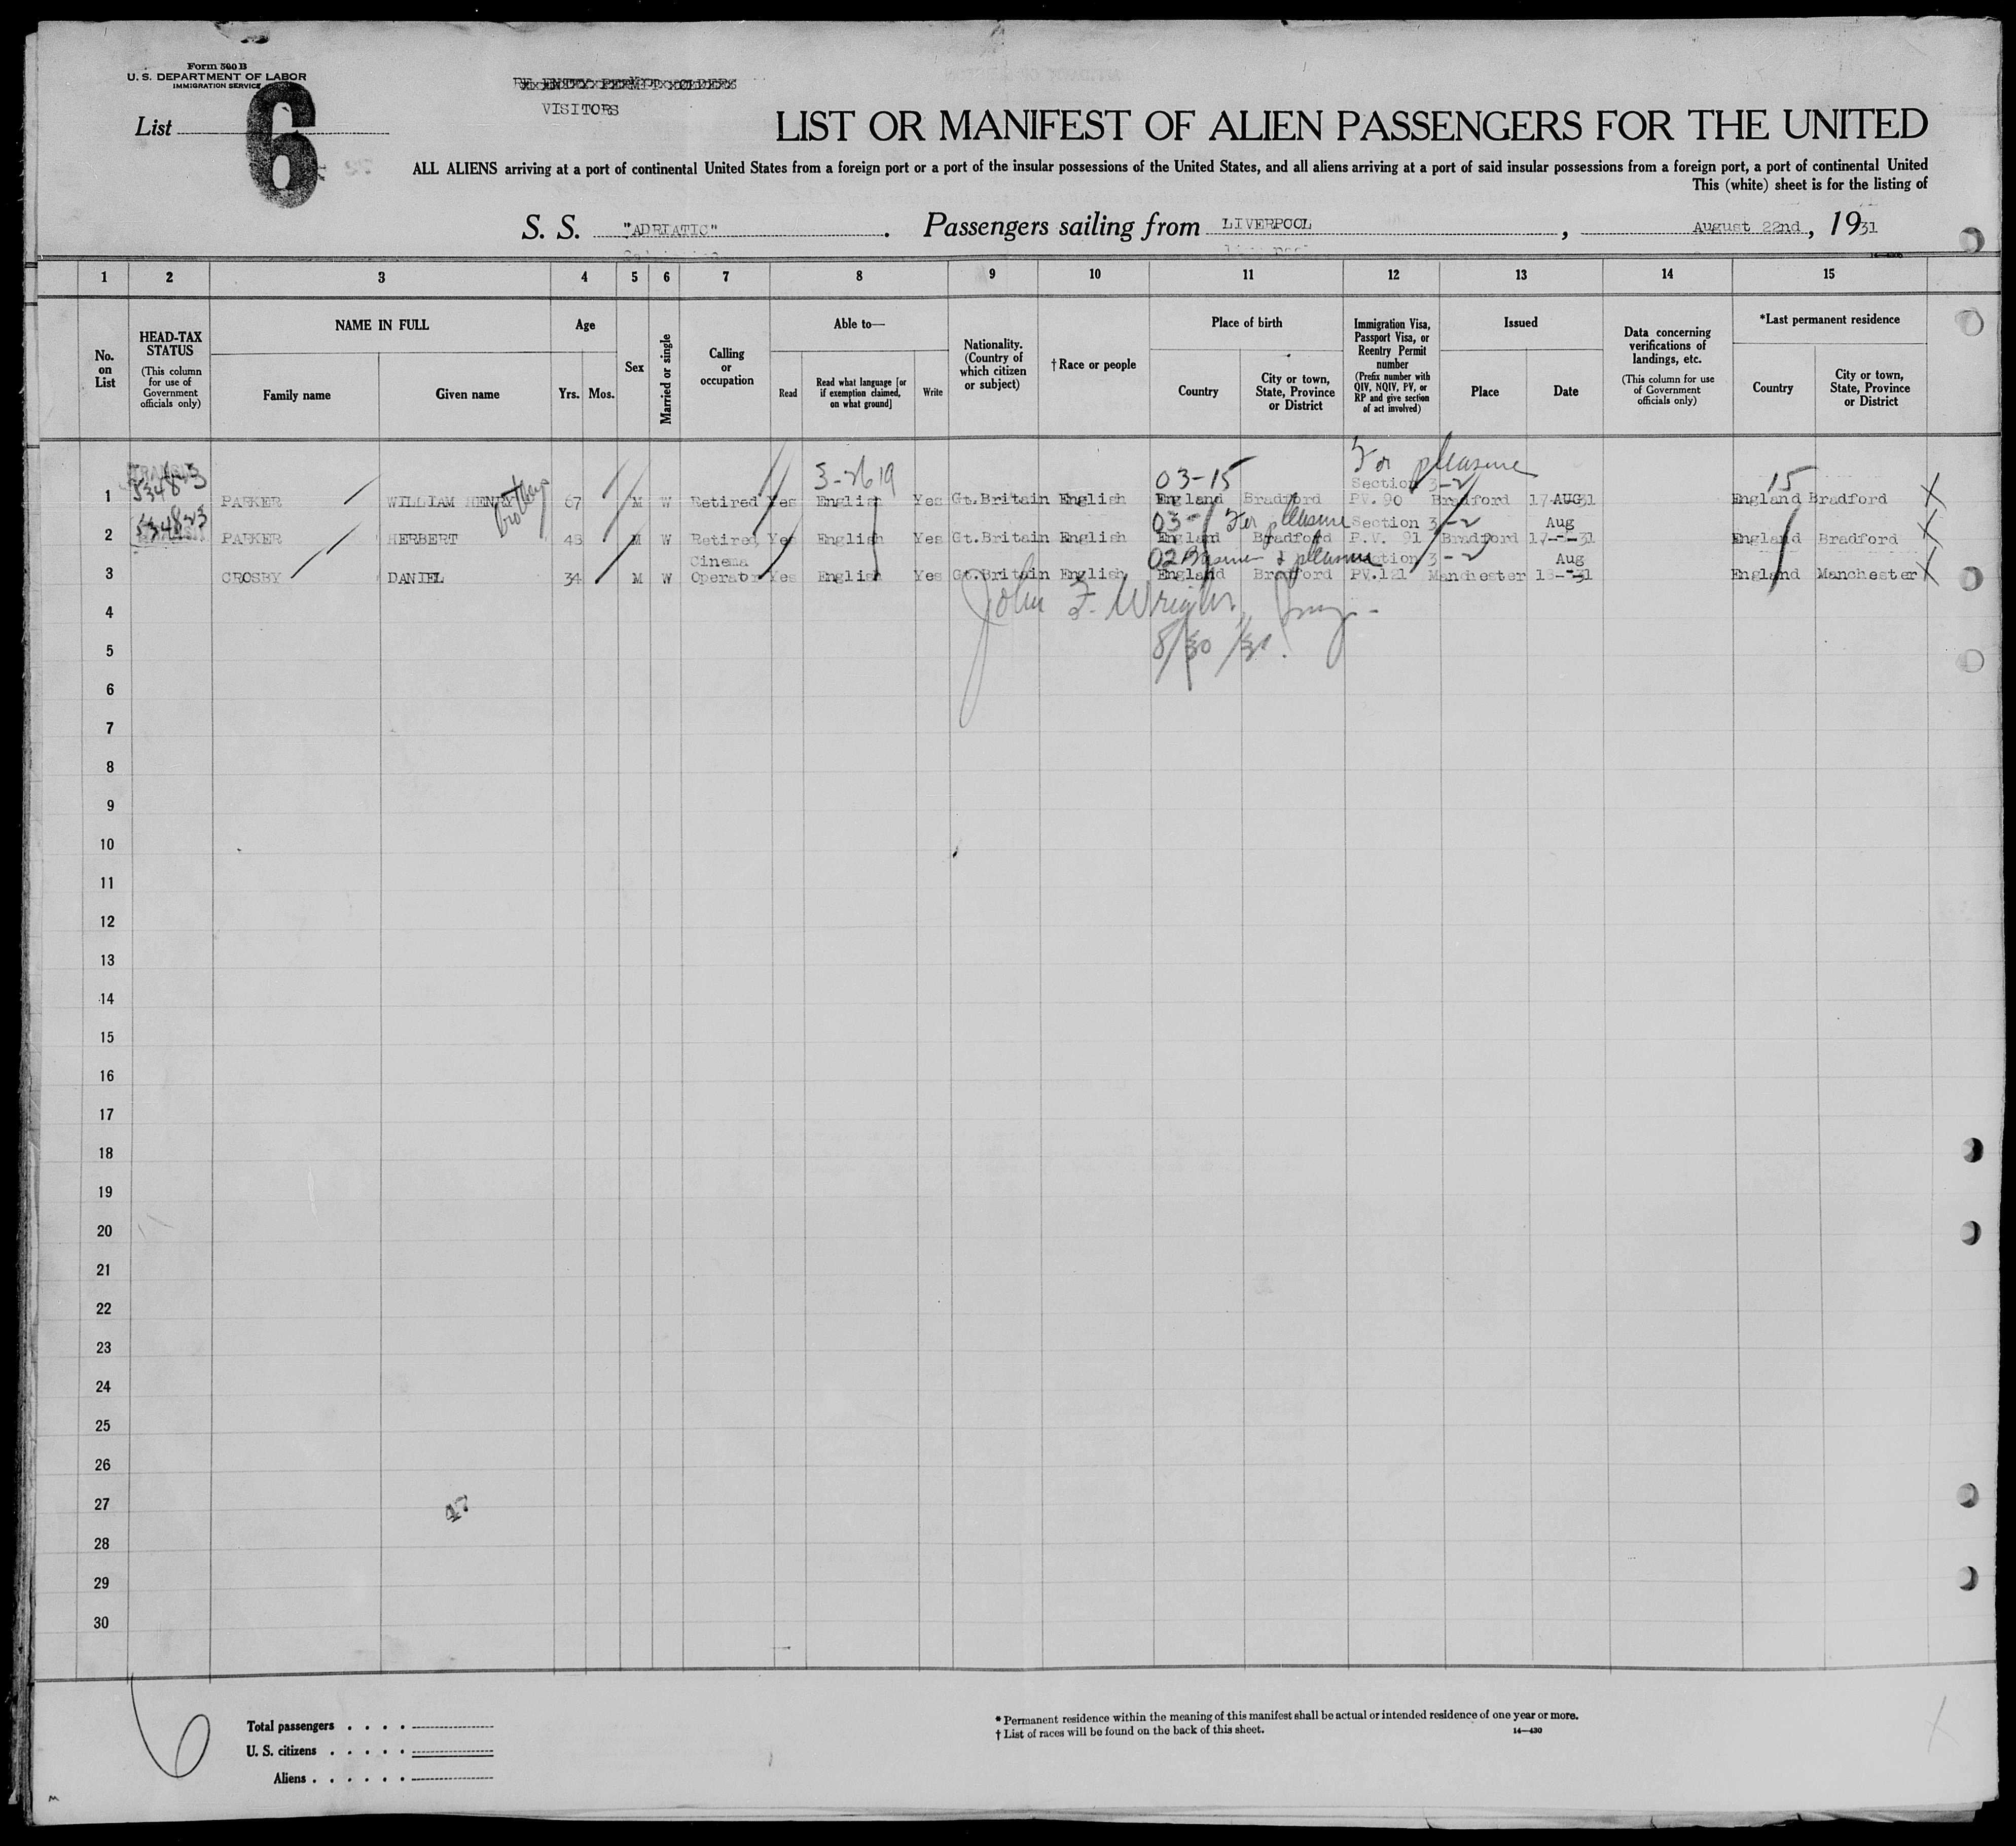 Form 500 B
U. S. DEPARTMENT OF LABOR
IMMIGRATION SERVICE
RE ENTRY PERMIT HOLDERS
VISITORS
List 6
LIST OR MANIFEST OF ALIEN PASSENGERS FOR THE UNITED
ALL ALIENS arriving at a port of continental United States from a foreign port or a port of the insular possessions of the United States, and all aliens arriving at a port of said insular possessions from a foreign port, a port of continental United
This (white) sheet is for the listing of
S. S. "ADRIATIC". Passengers sailing from LIVERPOOL, August 22nd, 1931
1 2 3 4 5 6 7 8 9 10 11 12 13 14 15
No. on List
HEAD-TAX STATUS (This column for use of Government officials only)
NAME IN FULL
Family name
Given name
Age
Yrs. Mos.
Sex
Married or single
Calling or occupation
Able to—
Read
Read what language [or if exemption claimed, on what ground]
Write
Nationality. (Country of which citizen or subject)
†Race or people
Place of birth
Country
City or town, State, Province or District
Immigration Visa, Passport Visa, or Reentry Permit number (Prefix number with QIV, NQIV, PV, or RP and give section of act involved)
Issued
Place
Date
Data concerning verifications of landings, etc. (This column for use of Government officials only)
*Last permanent residence
Country
City or town, State, Province or District
TRANSIT 3-2619 03-15 For pleasure 15
534823 Section 3-2
1 PARKER WILLIAM HENRY brothers 67 M W Retired Yes English Yes Gt.Britain English England Bradford PV. 90 Bradford 17-AUG31 England Bradford X
534823 03- For pleasure Section 3-2 Aug
2 PARKER HERBERT 43 M W Retired Yes English Yes Gt.Britain English England Bradford P.V. 91 Bradford 17-"-31 England Bradford X
Cinema 02 Business & pleasure Section 3-2 Aug
3 CROSBY DANIEL 34 M W Operator Yes English Yes Gt.Britain English England Bradford PV.121 Manchester 18-"31 England Manchester X
4 John F. Wright, Insp.
5 8/30/31.
6
7
8
9
10
11
12
13
14
15
16
17
18
19
20
21
22
23
24
25
26
27
28
29
30
6
Total passengers . . . .
U. S. citizens . . . . .
Aliens . . . . . .
* Permanent residence within the meaning of this manifest shall be actual or intended residence of one year or more.
† List of races will be found on the back of this sheet. 14—430